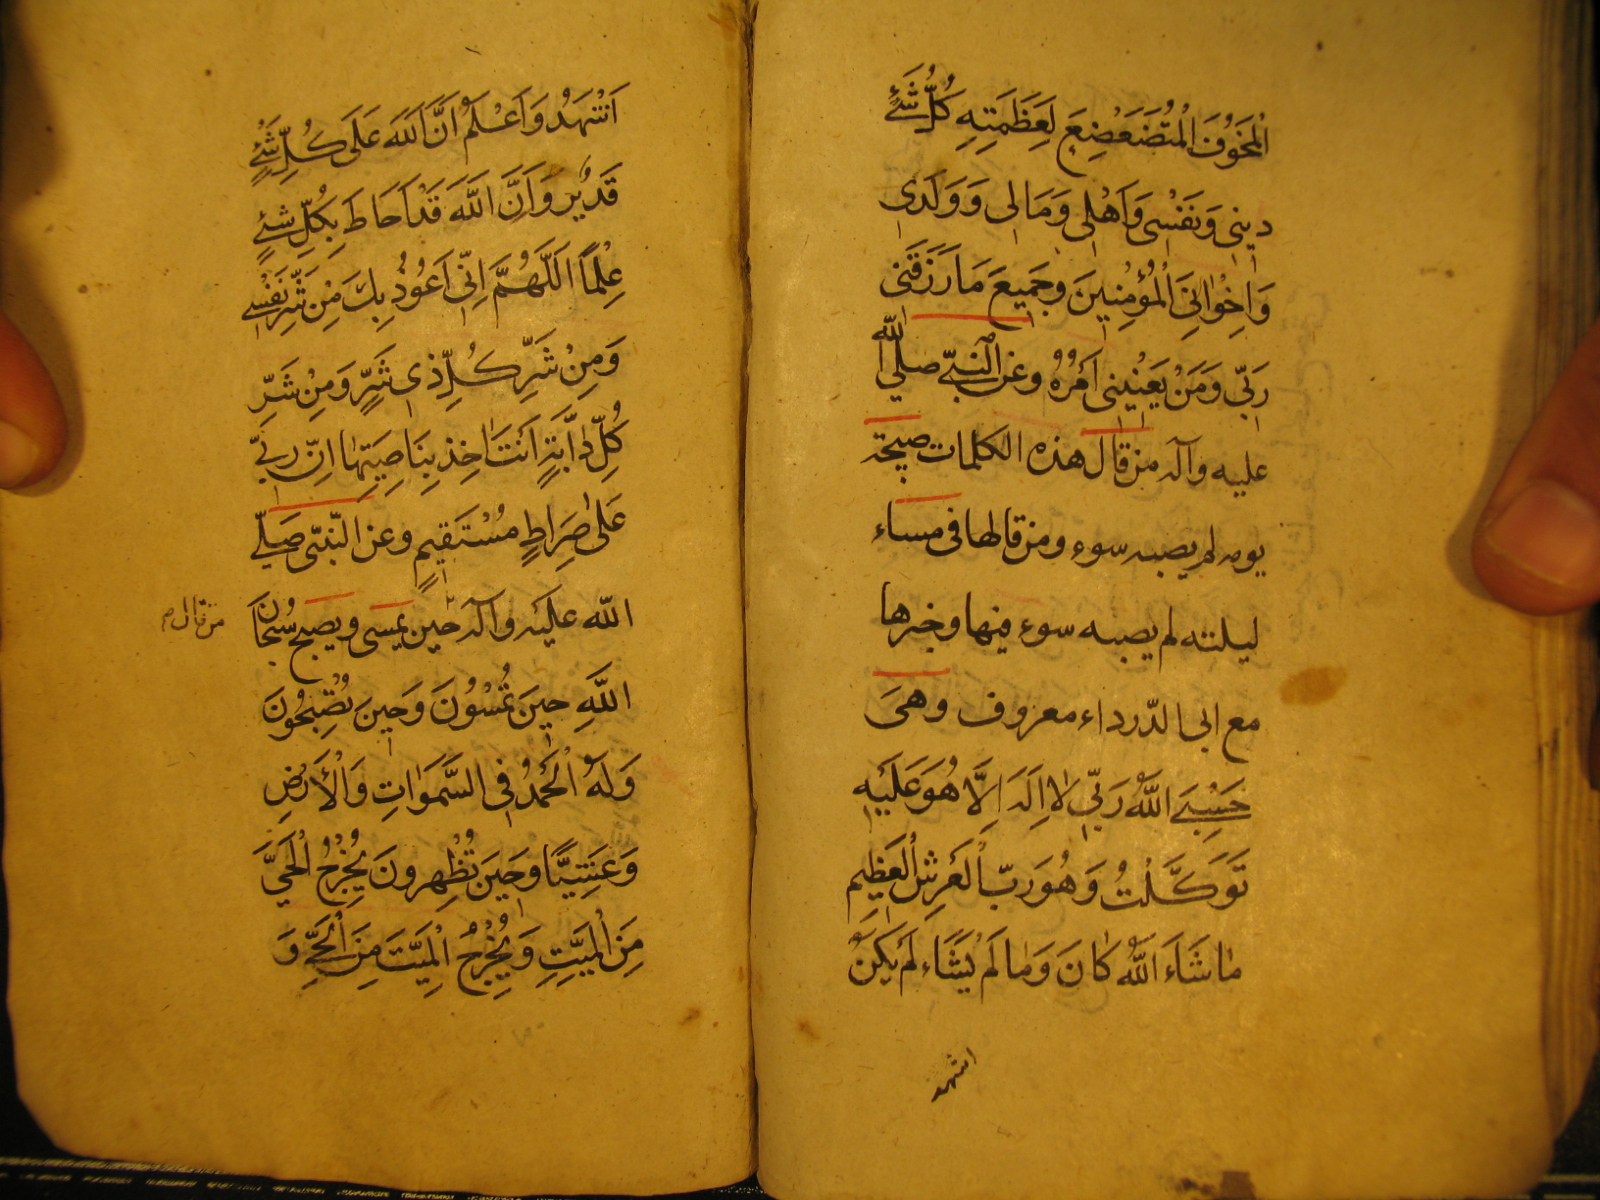 الْمَخُوْفَ الْمُتَضَعْضِعَ لِعَظَمَتِهِ كُلُّ شَئٍ
دِينِى وَنَفْسِى وَاَهْلِى وَمَالِى وَوَلَدِى
وَاِخْوٰانِىَ الْمُؤْمِنِينَ وَجَمِيعَ مَا رَزَقَنِى
رَبِّى وَمَنْ يَعْنِينِى اَمْرُهُ وعن النبىّ صلّى اللّه
عليه وآله من قال هذه الكلمات صبيحة
يومه لم يصبه سوء ومن قالها فى مساء
ليلته لم يصبه سوء فيها وخبرها
مع ابى الدّرداء معروف وهىَ
حَسْبِىَ اللّٰهُ رَبِّى لٰا اِلٰهَ اِلَّا هُوَ عَلَيْهِ
تَوَكَّلْتُ وَهُوَ رَبُّ الْعَرْشِ الْعَظِيمِ
مٰا شَاءَ اللّٰهُ كٰانَ وَمٰا لَمْ يَشَاءْ لَمْ يَكُنْ
اشهد
اَشْهَدُ وَاَعْلَمُ اَنَّ اللّٰهَ عَلَى كُلِّ شَئٍ
قَدِيْرٌ وَاَنَّ اللّٰهَ قَدْ اَحَاطَ بِكُلِّ شَئٍ
عِلْماً اَللّٰهُمَّ اِنِّى اَعُوْذُ بِكَ مِنْ شَرِّ نَفْسِى
وَمِنْ شَرِّ كُلِّ ذِى شَرٍّ وَمِنْ شَرِّ
كُلِّ دٰابَّةٍ اَنْتَ اٰخِذٌ بِنَاصِيَتِهٰا اِنَّ رَبِّى
عَلىٰ صِرَاطٍ مُسْتَقِيمٍ وعن النّبىّ صَلّى
اللّه عليه وآله حين يمسى ويصبح سُبْحَانَ
من قال م
اللّٰهِ حِينَ تُمْسُوْنَ وَحِينَ تُصْبِحُونَ
وَلَهُ الْحَمْدُ فِى السَّمَوٰاتِ وَالْاَرْضِ
وَعَشِيًّا وَحِينَ تُظْهِرونَ يُخْرِجُ الْحَىَّ
مِنَ الْمَيِّتِ وَيُخْرِجُ الْمَيِّتَ مِنَ الْحَىِّ وَ